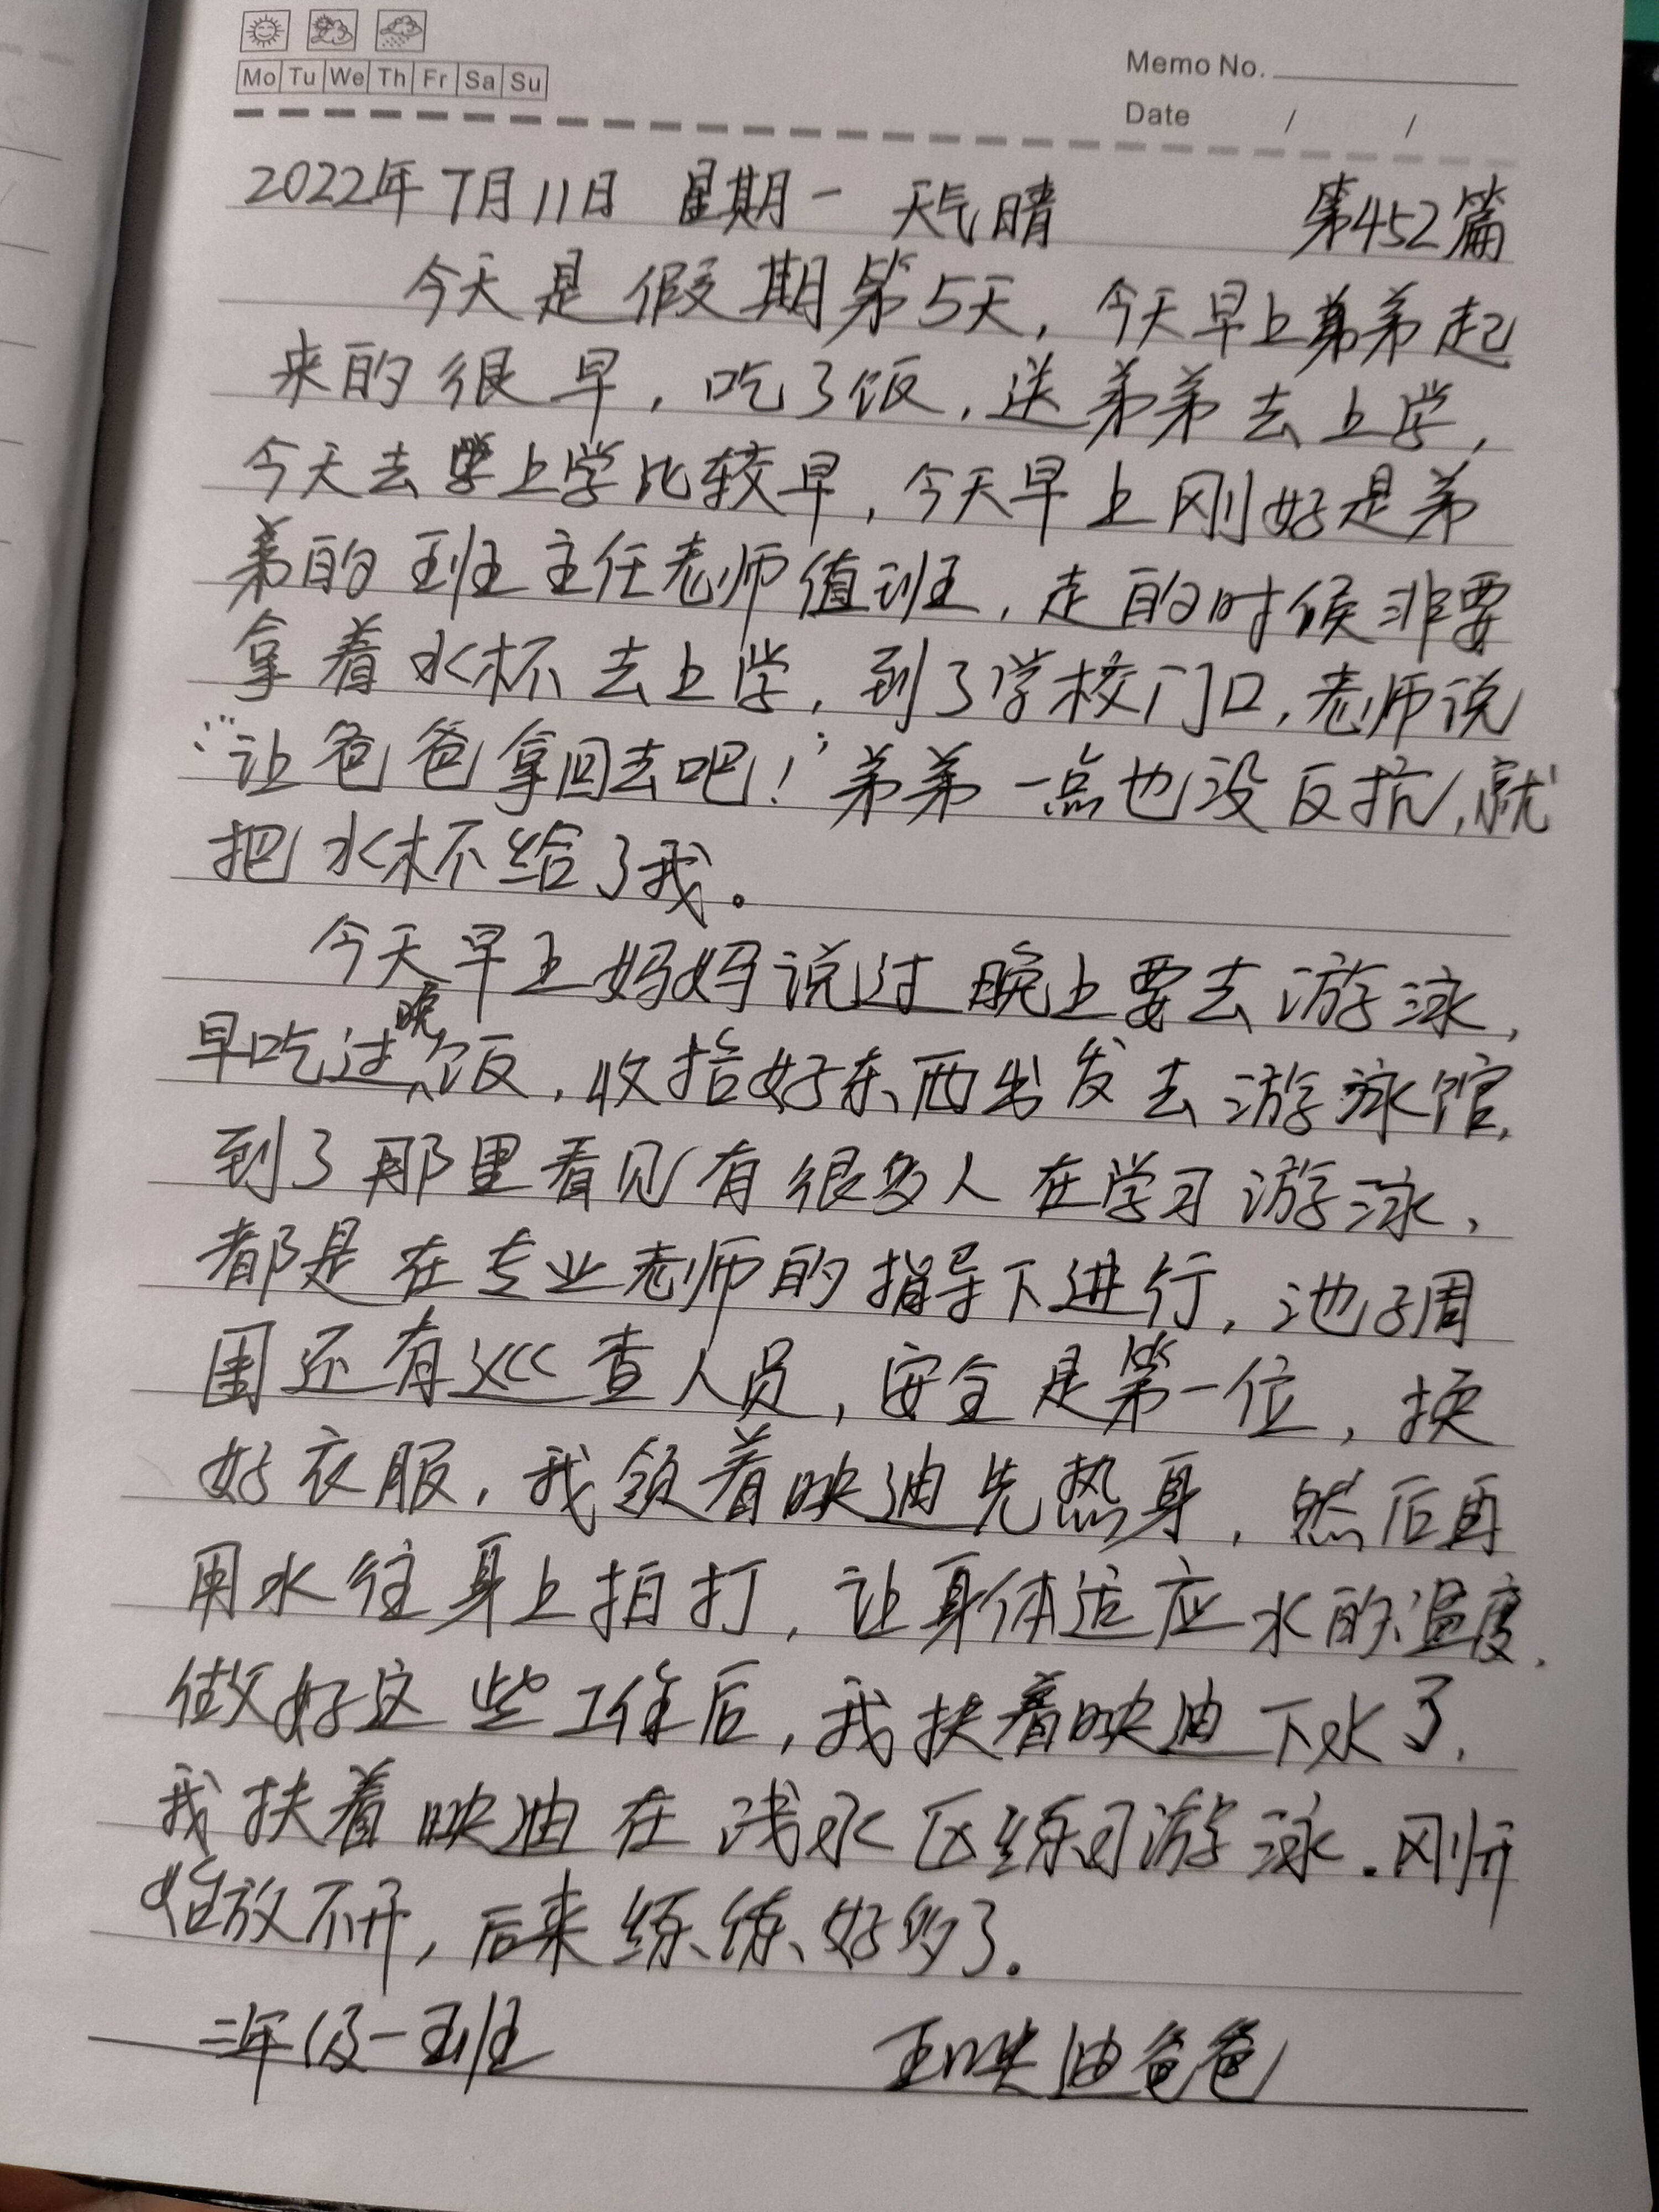 Mo Tu We Th Fr Sa Su
Memo No.
Date / /
2022年7月11日 星期一 天气晴 第452篇
今天是假期第5天，今天早上弟弟起
来的很早，吃了饭，送弟弟去上学，
今天去学上学比较早，今天早上刚好是弟
弟的班主任老师值班，走的时候非要
拿着水杯去上学，到了学校门口，老师说
：“让爸爸拿回去吧！”弟弟一点也没反抗，就
把水杯给了我。
今天早上妈妈说过晚上要去游泳，
早吃过晚饭，收拾好东西出发去游泳馆，
到了那里看见有很多人在学习游泳，
都是在专业老师的指导下进行，池子周
围还有巡查人员，安全是第一位，换
好衣服，我领着映迪先热身，然后再
用水往身上拍打，让身体适应水的温度，
做好这些工作后，我扶着映迪下水了，
我扶着映迪在浅水区练习游泳。刚开
始放不开，后来练练好多了。
二年级一班 王映迪爸爸